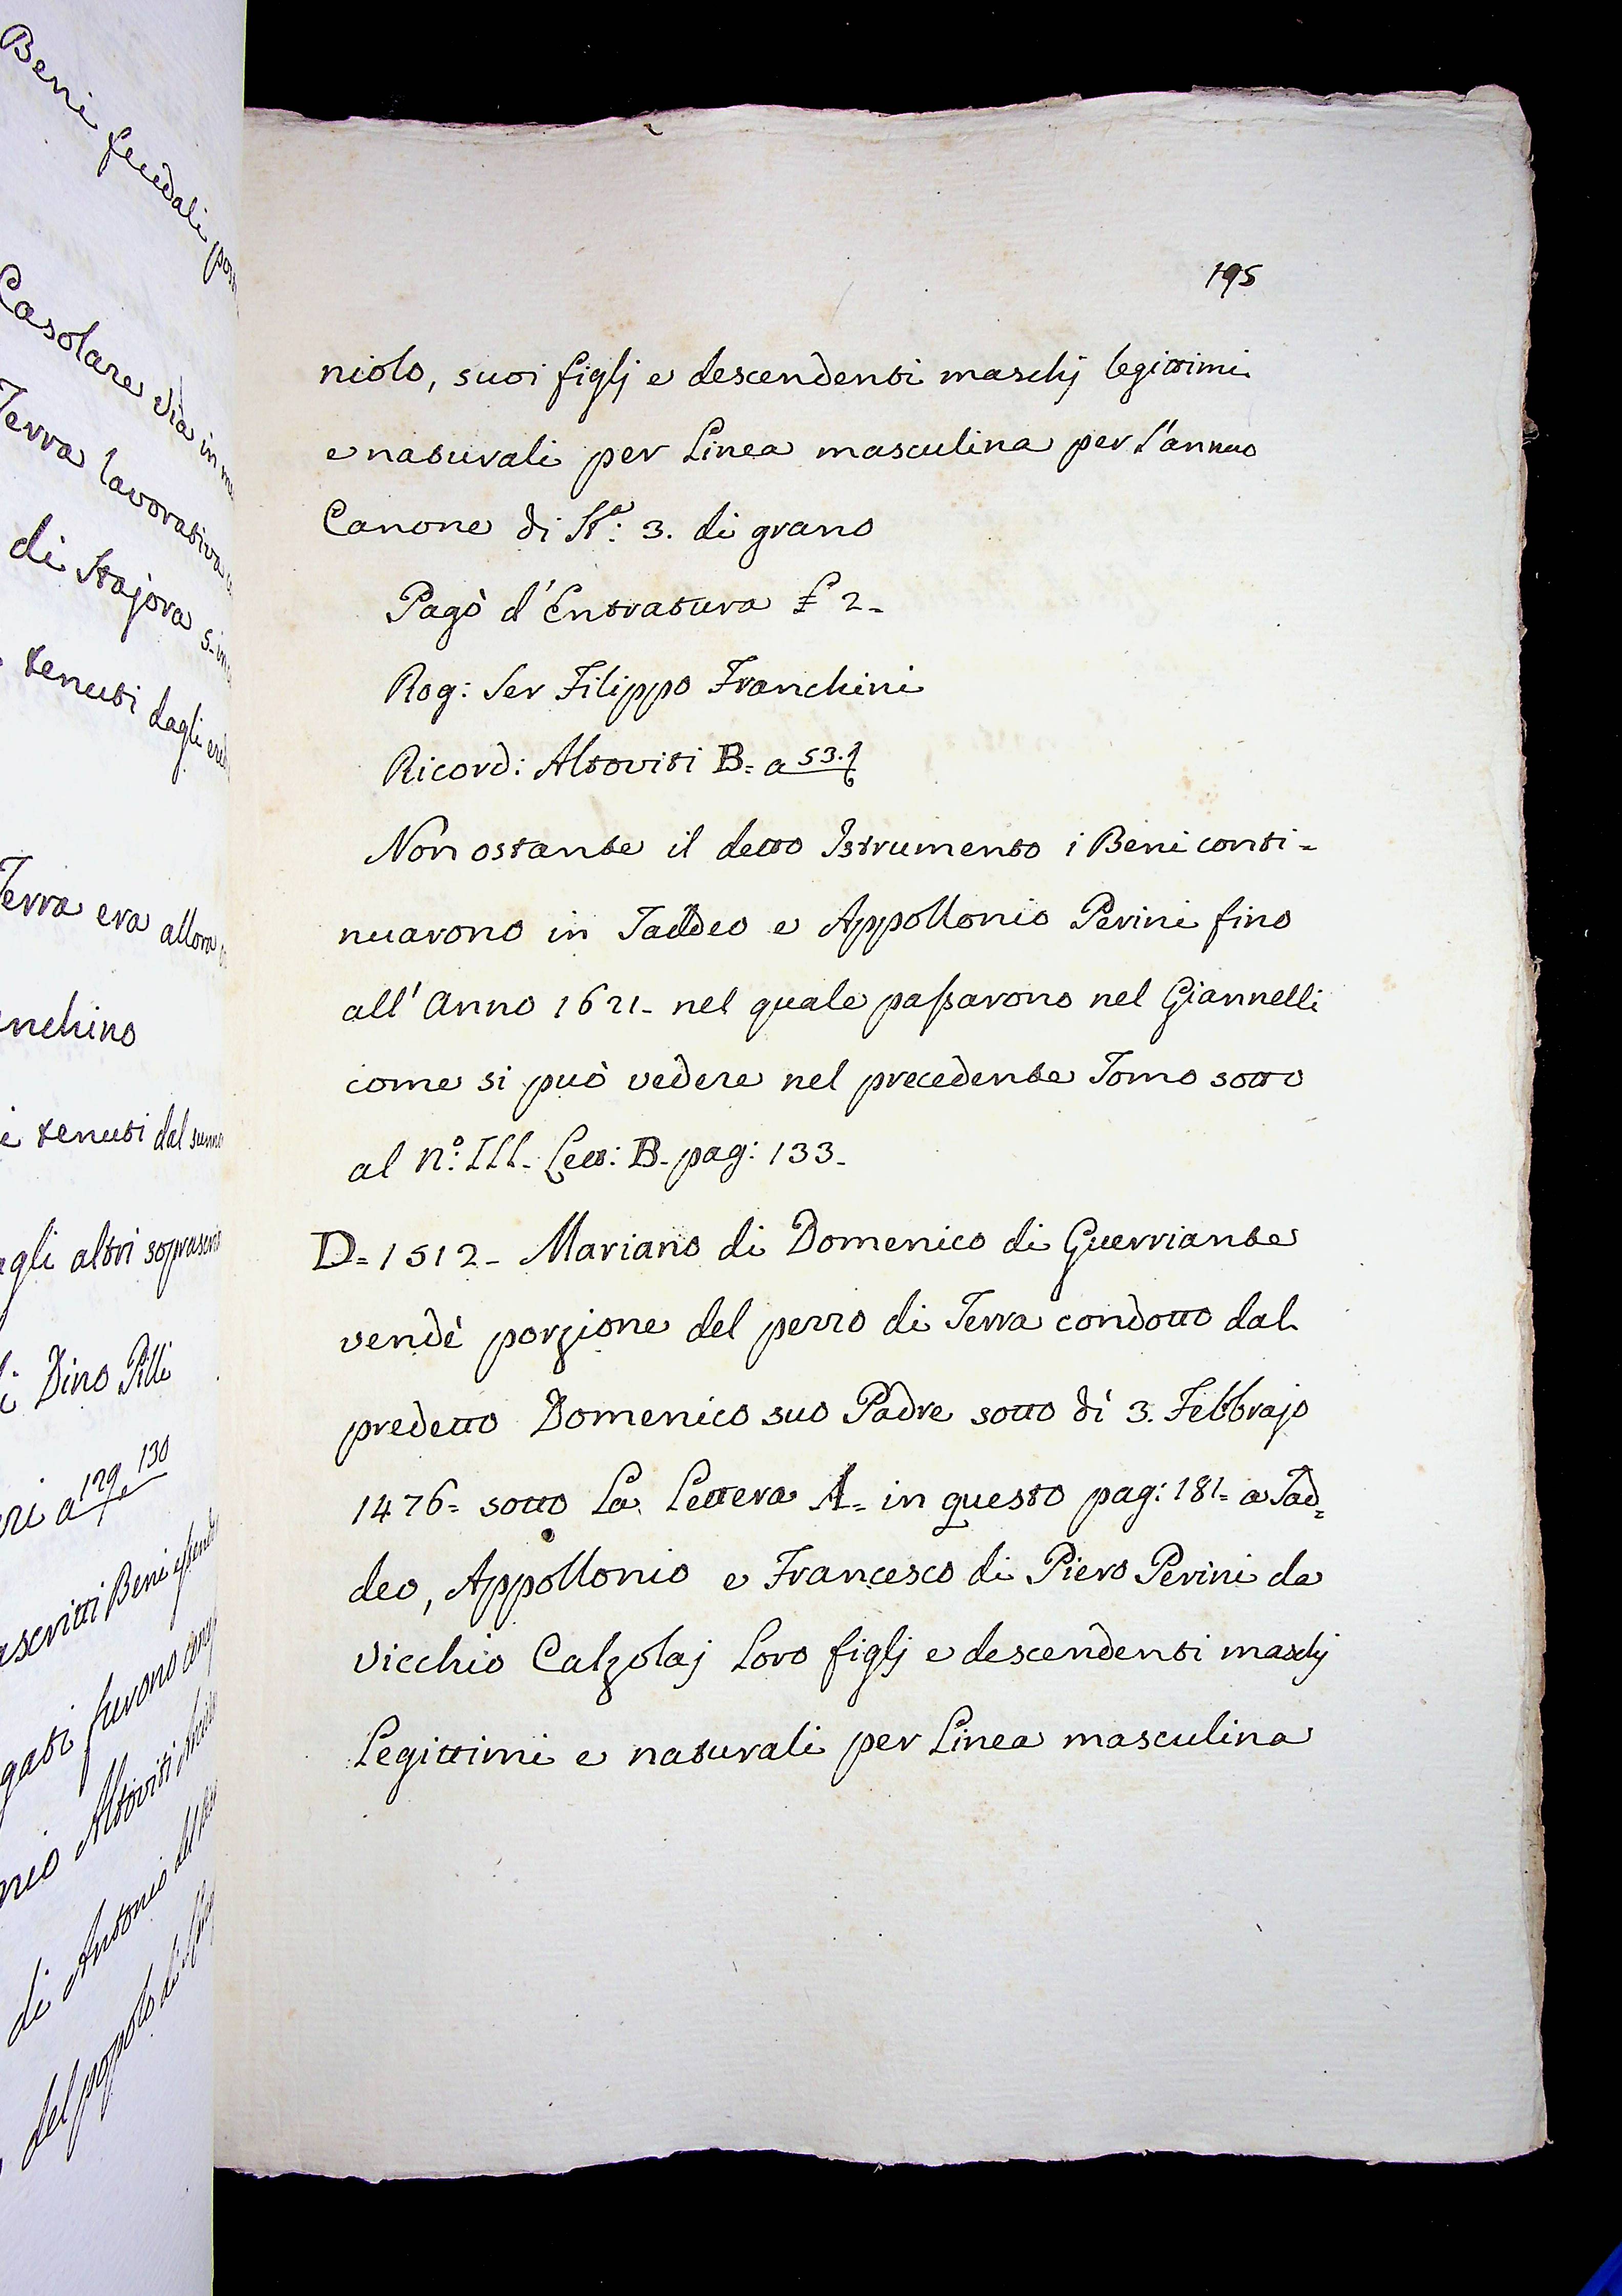 Beni feudali
Casolare
Terra lavorativa
di Stajora
tenuti dagli
Terra era allora
nchino
tenuti dal
gli altri
Dino Pilli
ri a 129 e 130
ascritti Beni
gati furono
Altoviti
di Antonio
del popolo di
195
niolo, suoi figlj e descendenti maschj legittimi
e naturali per Linea masculina per l'annuo
Canone di Sta: 3. di grano
Pagò d'Entratura £ 2-
Rog: Ser Filippo Franchini
Ricord: Altoviti B= a 53.
Non ostante il detto Istrumento i Beni conti=
nuarono in Taddeo e Appollonio Perini fino
all' Anno 1621- nel quale passarono nel Giannelli
come si può vedere nel precedente Tomo sotto
al N.º III- Lett: B- pag: 133-
D= 1512- Mariano di Domenico di Guerriante
vendè porzione del pezzo di Terra condotto dal
predetto Domenico suo Padre sotto dì 3. Febbrajo
1476= sotto La Lettera A- in questo pag: 181= a Tad=
deo, Appollonio e Francesco di Piero Perini da
Vicchio Calzolaj Loro figlj e descendenti maschj
Legittimi e naturali per Linea masculina